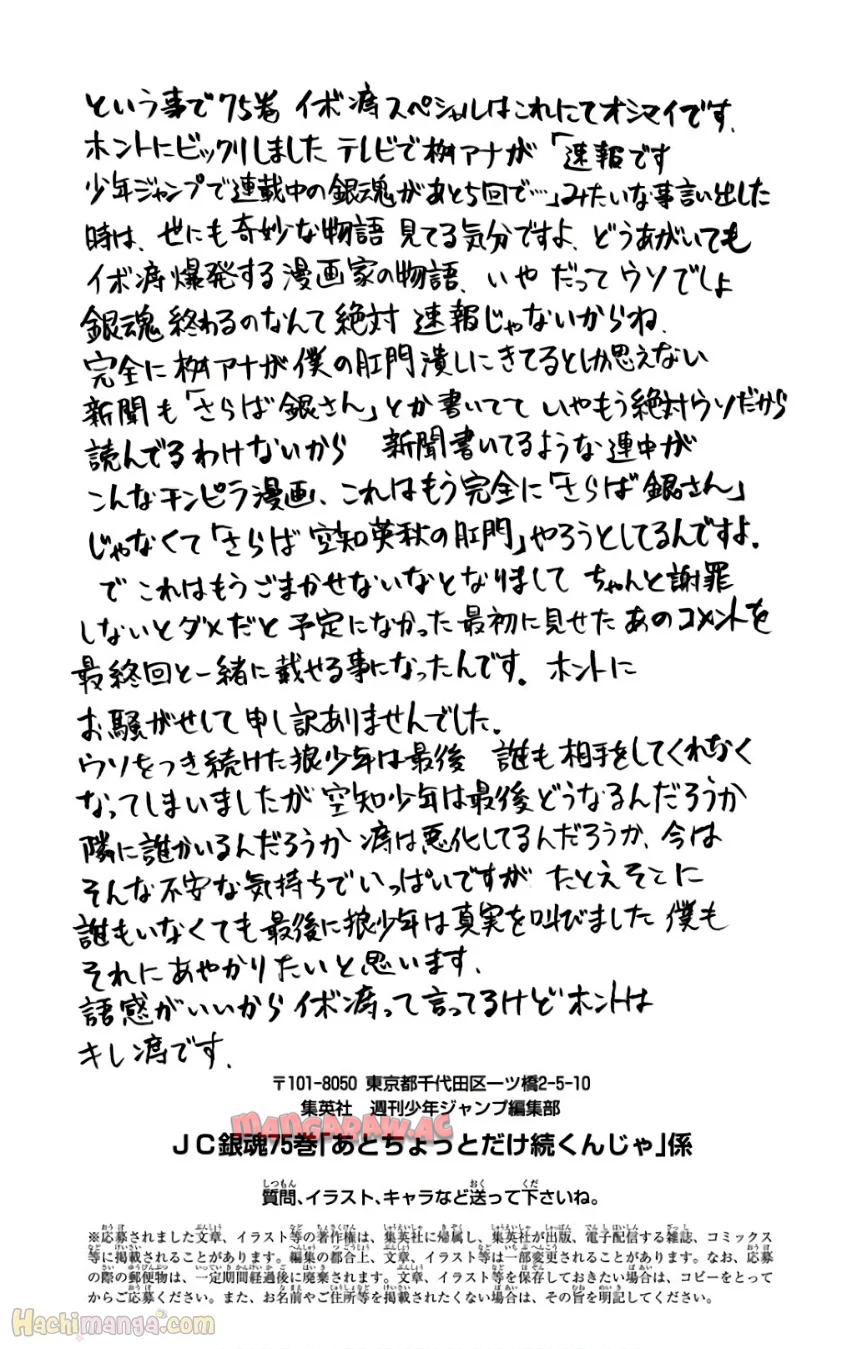 という事で75巻 イボ痔スペシャルはこれにてオシマイです.
ホントにビックリしました テレビで桝アナが「速報です
少年ジャンプで連載中の銀魂があと5回で…」みたいな事言い出した
時は、世にも奇妙な物語 見てる気分ですよ. どうあがいても
イボ痔爆発する漫画家の物語. いや だってウソでしょ
銀魂終わるのなんて絶対 速報じゃないからね.
完全に桝アナが僕の肛門潰しにきてるとしか思えない
新聞も「さらば銀さん」とか書いてて いやもう絶対ウソだから
読んでるわけないから 新聞書いてるような連中が
こんなチンピラ漫画、これはもう完全に「さらば銀さん」
じゃなくて「さらば空知英秋の肛門」やろうとしてるんですよ.
で これはもうごまかせないなとなりまして ちゃんと謝罪
しないとダメだと予定になかった最初に見せたあのコメントを
最終回と一緒に載せる事になったんです。ホントに
お騒がせして申し訳ありませんでした.
ウソをつき続けた狼少年は最後 誰も相手をしてくれなく
なってしまいましたが空知少年は最後どうなるんだろうか
隣に誰かいるんだろうか 痔は悪化してるんだろうか、今は
そんな不安な気持ちでいっぱいですが たとえそこに
誰もいなくても最後に狼少年は真実を叫びました 僕も
それにあやかりたいと思います.
語感がいいからイボ痔って言ってるけどホントは
キレ痔です.
〒101-8050 東京都千代田区一ツ橋2-5-10
集英社 週刊少年ジャンプ編集部
MANGARAW.AC
JC銀魂75巻「あとちょっとだけ続くんじゃ」係
質問、イラスト、キャラなど送って下さいね。
※応募されました文章、イラスト等の著作権は、集英社に帰属し、集英社が出版、電子配信する雑誌、コミックス
等に掲載されることがあります。編集の都合上、文章、イラスト等は一部変更されることがあります。なお、応募
の際の郵便物は、一定期間経過後に廃棄されます。文章、イラスト等を保存しておきたい場合は、コピーをとって
からご応募ください。また、お名前やご住所等を掲載されたくない場合は、その旨を明記してください。
Hachimanga.com